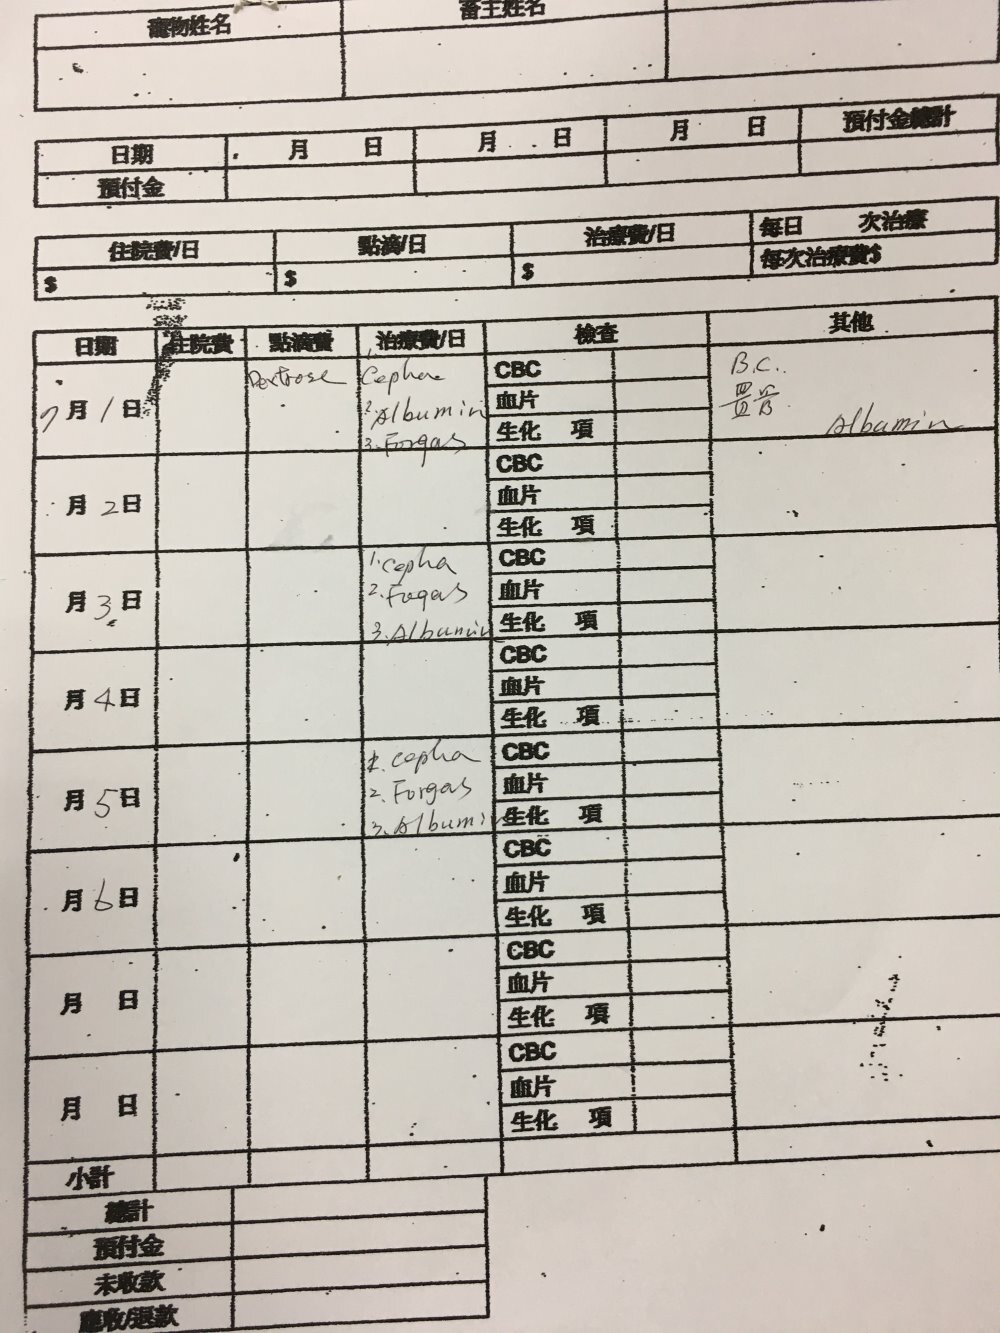 寵物姓名 畜主姓名
日期 月 日 月 日 月 日 預付金總計
預付金
住院費/日 點滴/日 治療費/日 每日 次治療
$ $ $ 每次治療費$
日期 住院費 點滴費 治療費/日 檢查 其他
7月1日 Dextrose 1. Cepha CBC B.C.
2. Albumin 血片
3. Forgas 生化 項 Albumin
月2日 CBC
血片
生化 項
月3日 1. Cepha CBC
2. Fogas 血片
3. Albumin 生化 項
月4日 CBC
血片
生化 項
月5日 1. Cepha CBC
2. Forgas 血片
3. Albumin 生化 項
月6日 CBC
血片
生化 項
月 日 CBC
血片
生化 項
月 日 CBC
血片
生化 項
小計
總計
預付金
未收款
應收/退款